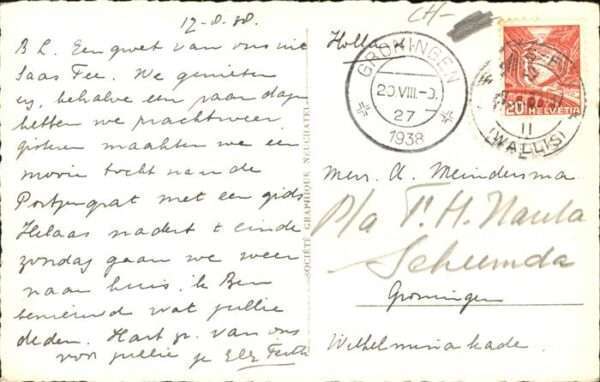 17-8-38.
B L. Een groet van ons uit
Saas Fee. We genieten
behalve een paar dagen
hebben we prachtweer,
gisteren maakten we een
mooie tocht naar de
Portjengrat met een gids
Helaas nadert 't einde
zondag gaan we weer
naar huis, ik Ben
benieuwd wat jullie
deden. Hart gr. van ons
voor jullie je
SOCIÉTÉ GRAPHIQUE NEUCHATEL
CH-
Holland
GRONINGEN
20.VIII
27
1938
20 HELVETIA
II
(WALLIS)
A. Meindersma
p/a T. H. Nauta
Scheemda
Groningen
Wilhelminakade.